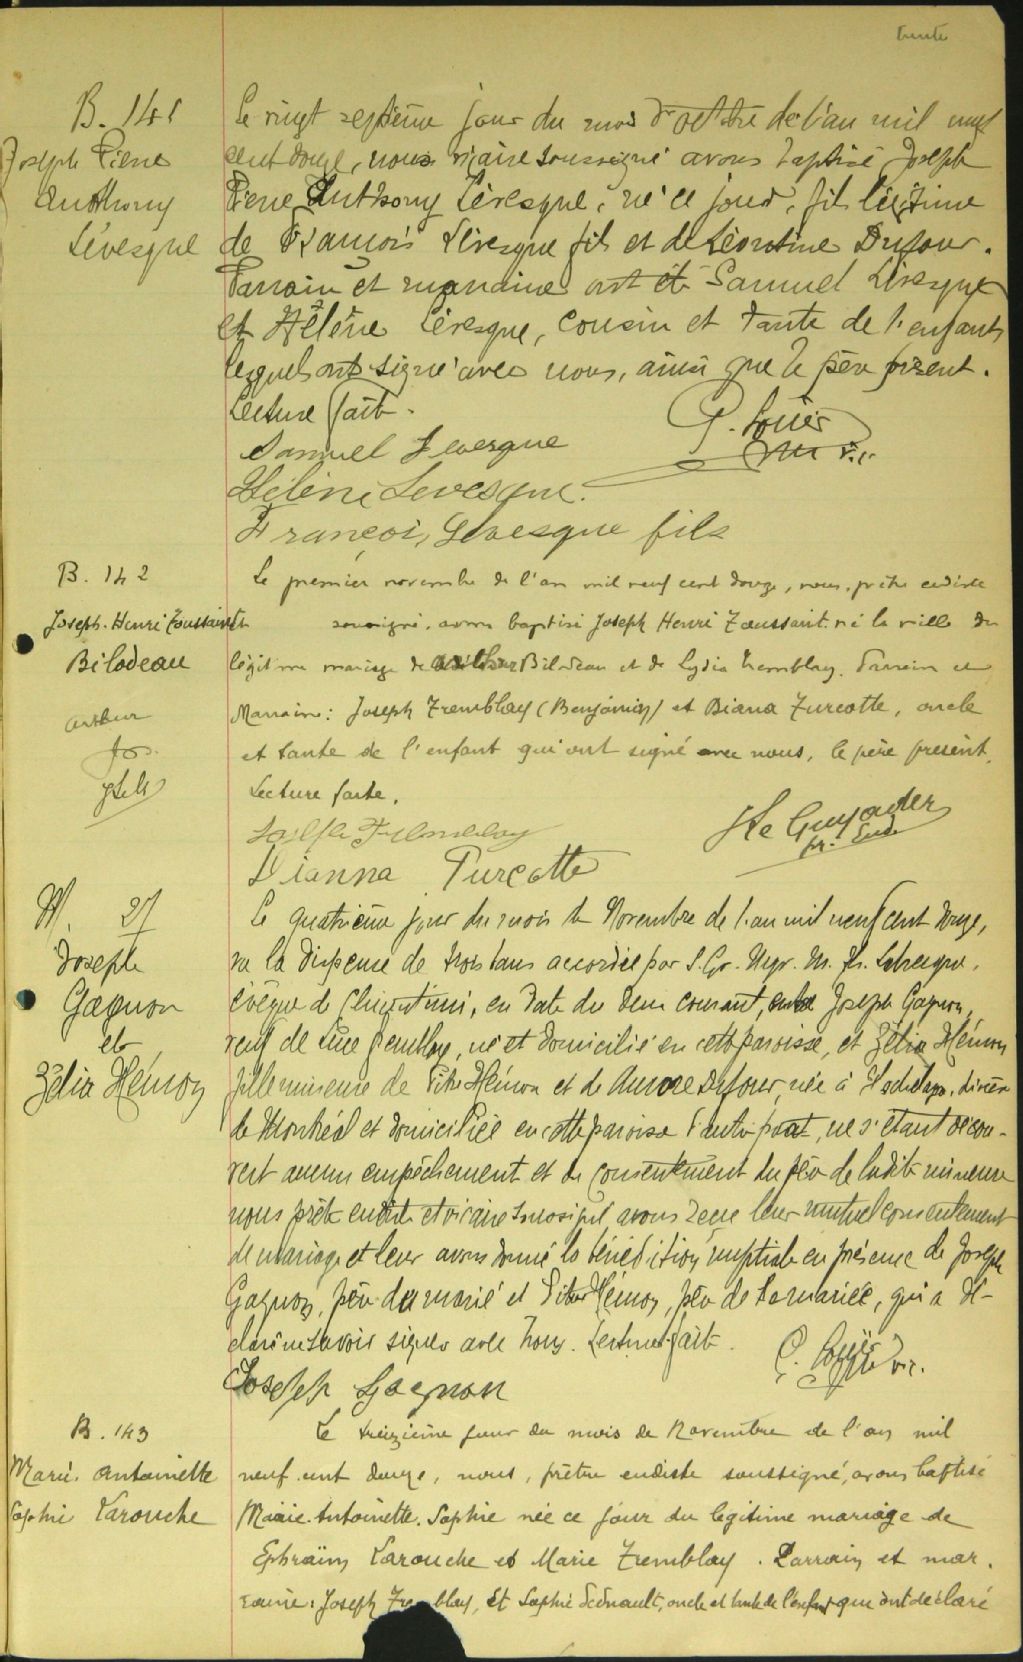 trente
B. 141
Joseph Pierre
Anthony
Lévesque
Le vingt septième jour du mois d'octbre de l'an mil neuf
cent douze, nous vicaire soussigné avons baptisé Joseph
Pierre Anthony Lévesque, né ce jour, fils légitime
de François Lévesque fils et de Léontine Dufour.
Parrain et marraine ont été Samuel Lévesque
et Hélène Lévesque, cousin et tante de l'enfant
lesquels ont signé avec nous, ainsi que le père présent.
Lecture faite.
Samuel Levesque
Hélène Levesque.
François Levesque fils
B. 142
Joseph-Henri Toussaint
Bilodeau
Arthur
Le premier novembre de l'an mil neuf cent douze, nous, prêtre eudiste
soussigné, avons baptisé Joseph Henri Toussaint né la veille du
légitime mariage de Bilodeau et de Lydia Tremblay. Parrain et
Marraine: Joseph Tremblay (Benjamin) et Diana Turcotte, oncle
et tante de l'enfant qui ont signé avec nous, le père présent.
Lecture faite.
Joseph Tremblay
Dianna Turcotte
J Le Guyader
pr. Eud.
M 27
Joseph
Gagnon
et
Zélia Hémon
Le quatrième jour du mois de Novembre de l'an mil neuf cent douze,
vu la dispense de trois bans accordée par S. Gr. Mgr. M. Th. Labrecque,
évêque de Chicoutimi, en date du deux courant, entre Joseph Gagnon,
veuf de Tremblay, né et domicilié en cette paroisse, et Zélia Hémon
fille mineure de Hémon et de Aurore Dufour, née à Hochelaga, diocèse
de Montréal et domiciliée en cette paroisse d'autre part, ne s'étant décou-
vert aucun empêchement et du consentement du père de ladite mineure
nous prêtre eudiste et vicaire soussigné avons reçu leur mutuel consentement
de mariage et leur avons donné la bénédiction nuptiale en présence de Joseph
Gagnon, père du marié et Hémon, père de la mariée, qui a dé-
claré ne savoir signer avec nous. Lecture faite.
Joseph Gagnon
B. 143
Marie Antoinette
Sophie Larouche
Le treizième jour du mois de Novembre de l'an mil
neuf cent douze, nous, prêtre eudiste soussigné, avons baptisé
Marie-Antoinette-Sophie née ce jour du légitime mariage de
Ephraïm Larouche et Marie Tremblay. Parrain et mar-
raine: Joseph Tremblay, et Sophie oncle et tante de l'enfant qui ont déclaré